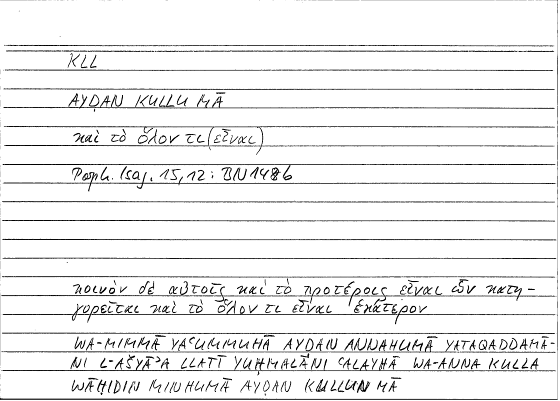 KLL
AYḌAN KULLU MĀ
καὶ τὸ ὅλον τι (εἶναι)
Porph. Isag. 15,12 : BN 148b
κοινὸν δὲ αὐτοῖς καὶ τὸ προτέροις εἶναι ὧν κατη-
γορεῖται καὶ τὸ ὅλον τι εἶναι ἑκάτερον
WA-MIMMĀ YAʿUMMUHĀ AYḌAN ANNAHUMĀ YATAQADDAMĀ-
NI L-AŠYĀʾA LLATĪ YUḤMALĀNI ʿALAYHĀ WA-ANNA KULLA
WĀḤIDIN MINHUMĀ AYḌAN KULLUN MĀ